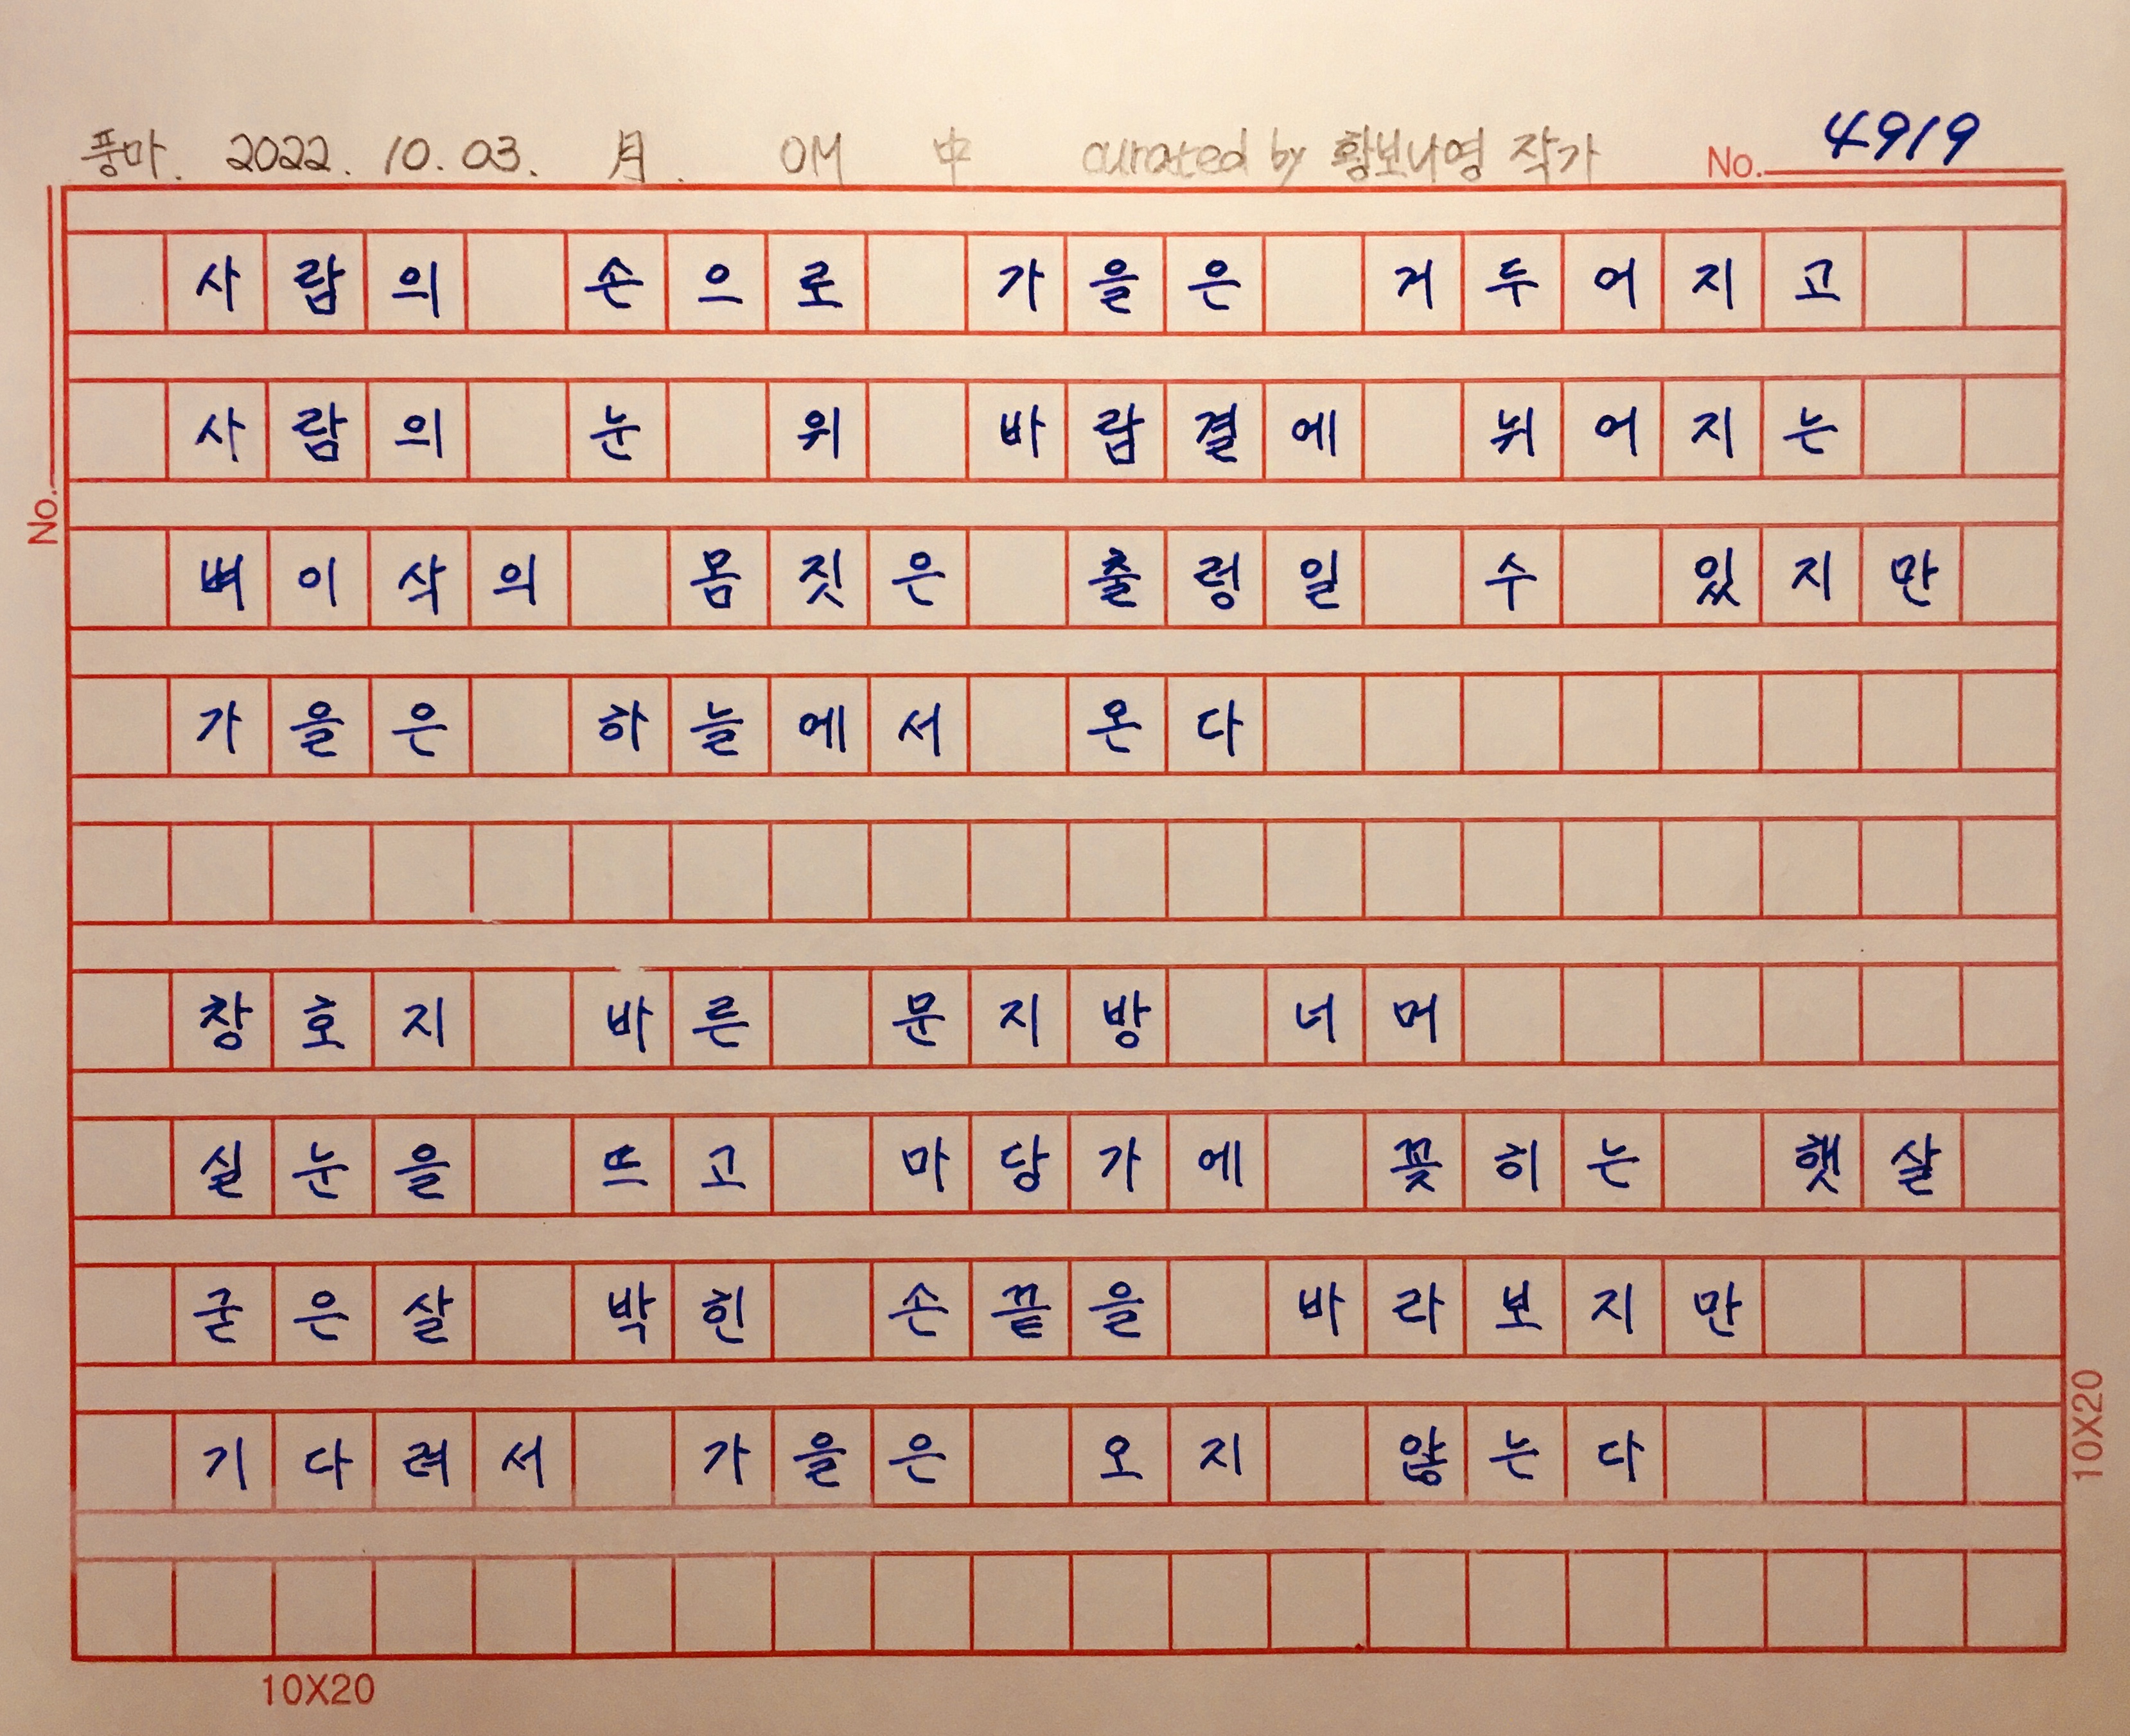 풍마. 2022. 10. 03. 月. OM 中 curated by 황보나영 작가 No. 4919
사람의 손으로 가을은 거두어지고
사람의 눈 위 바람결에 뉘어지는
No.
벼이삭의 몸짓은 출렁일 수 있지만
가을은 하늘에서 온다
창호지 바른 문지방 너머
실눈을 뜨고 마당가에 꽂히는 햇살
굳은살 박힌 손끝을 바라보지만
기다려서 가을은 오지 않는다
10X20
10X20